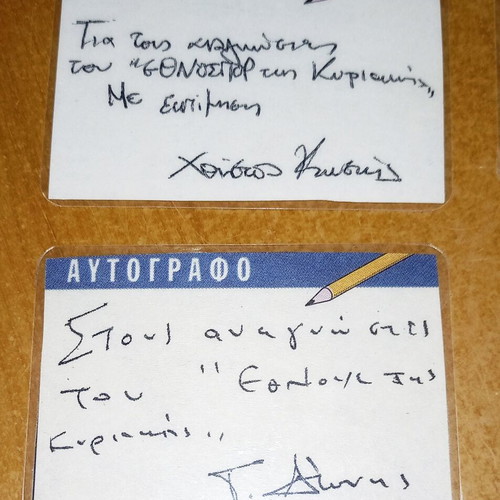 Για τους αναγνώστες
του "ΕΘΝΟΣΠΟΡ της Κυριακής"
Με εκτίμηση
Χρίστος
ΑΥΤΟΓΡΑΦΟ
Στους αναγνώστες
του "Έθνους της
Κυριακής"
Γ. Διώνης